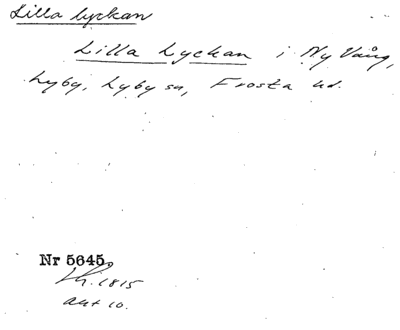 Lilla lyckan
Lilla Lyckan i Ny Vång,
Lyby, Lyby sn, Frosta hd.
Nr 5645.
Lk. 1815
akt 10.